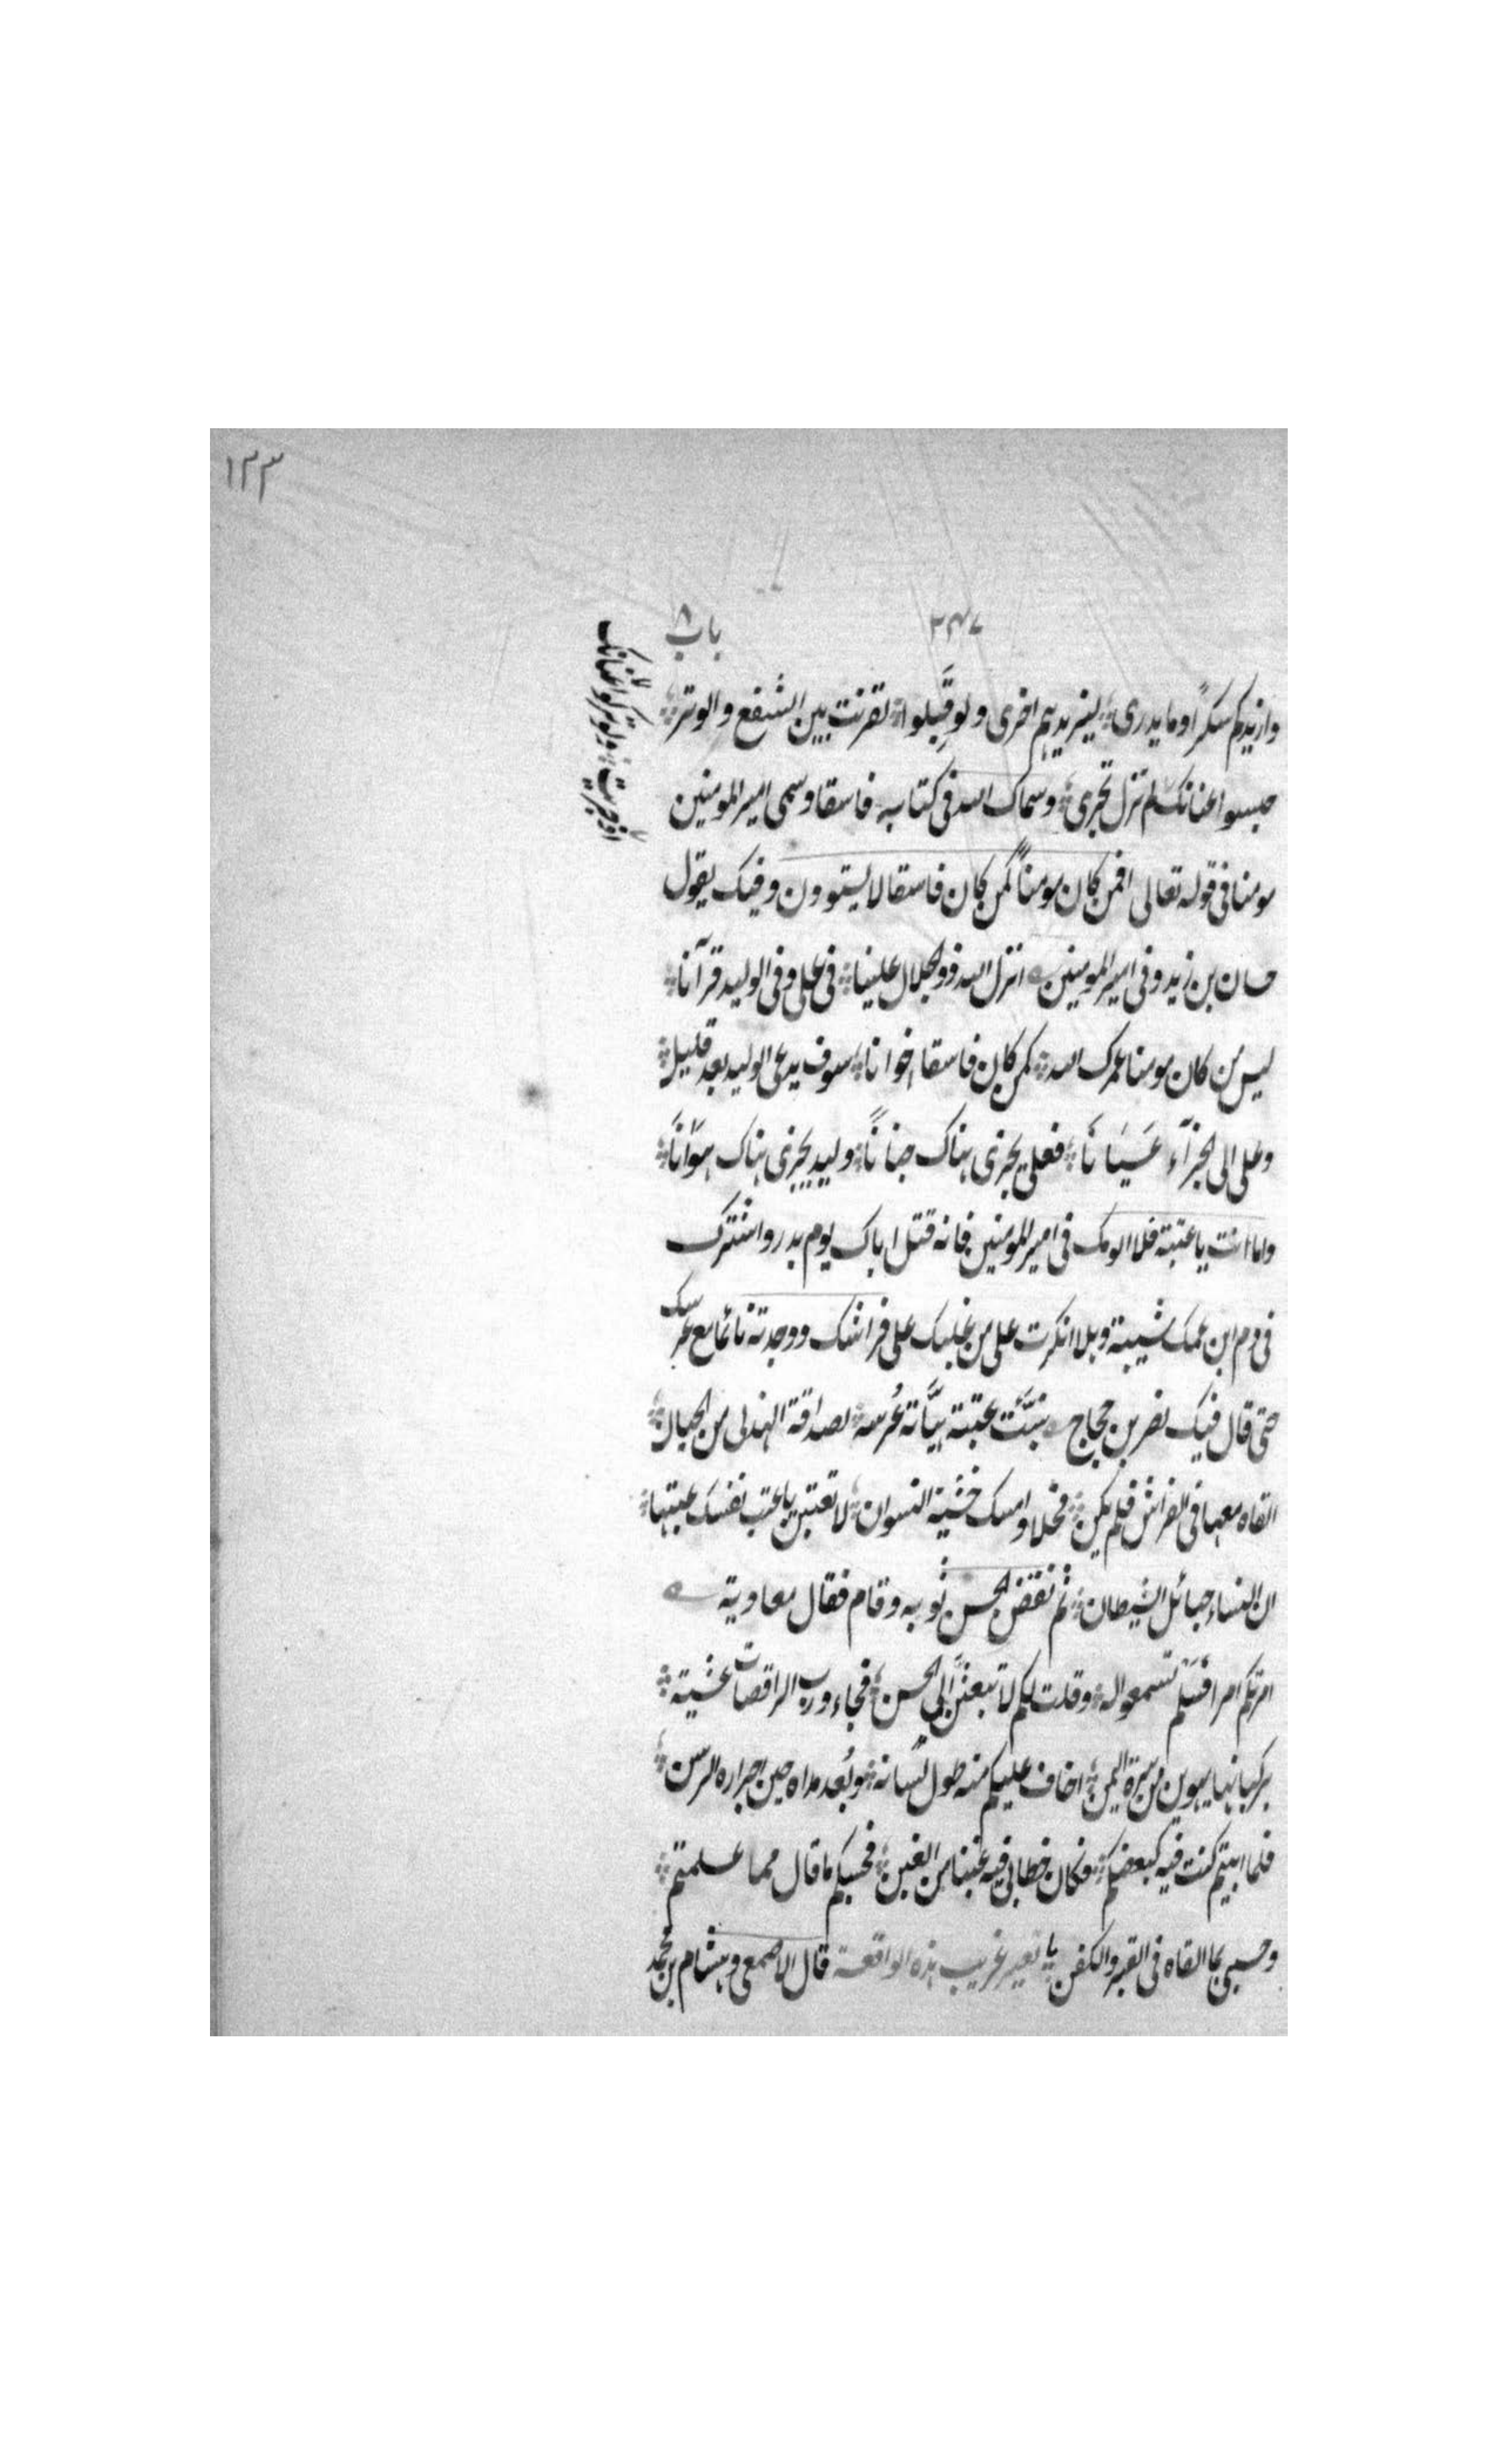 ١٣٣
٣٤٧
باب ٨
وازيدكم سكرًا وما يدرى ليزيدهم اخرى ولو قَبِلوا لقرنت بين الشفع والوتر
حبسوا عنانك لم تزل تجرى وسماك الله فى كتابه فاسقا وسمى امير المومنين
مومنا فى قوله تعالى افمن كان مومناً كمن كان فاسقا لا يستوون وفيك يقول
حسان بن زيد وفى امير المومنين انزل الله ذو الجلال علينا فى على وفى الوليد قرآنا
ليس من كان مومنا عمرك الله كمن كان فاسقا اخوانا سوف يدعى الوليد بعد قليل
وعلى الى الجزآء عَيَانَا فعلى يجزى هناك جنانًا وليد يجزى هناك هَوَانَا
واما انت يا عتبة فلا الومك فى امير المومنين فانه قتل اباك يوم بدر واشترك
فى دم ابن عمك شيبة وهلا انكرت على من غلبك على فراشك ووجدته نائما مع عرسك
حتى قال فيك نصر بن حجاج نُبِّئت عتبة عُرسه لصداقة الهذلى من
القاه معها فى الفراش فلم يكن فحلا وامسك خشية النسوان لا تعتبن يا عتب نفسك
ان النساء حبائل الشيطان ثم نفض الحسن ثوبه وقام فقال معاوية
امرتكم امرا فلم تسمعوا له وقلت لكم لا تبعثنّ الى الحسن فجاء ورب الراقصات عشية
بركبانها يهوين من سرة اليمن اخاف عليكم منه طول لسانه وبُعد مداه حين اجراره الرسن
فلما ابيتم كنت فيه كبعضكم وكان خطابى فيه غبنا من الغبن فحسبكم ما قال مما علمتم
وحسبى بما القاه فى القبر والكفن غريب هذه الواقعة قال الاصمعى وهشام بن محمد
ولو تركوا عنانك